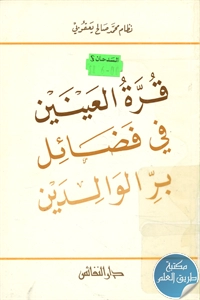 نظام محمد صالح يعقوبي
قرة العينين
في فضائل
بر الوالدين
دار النفائس
مكتبة
طريق العلم